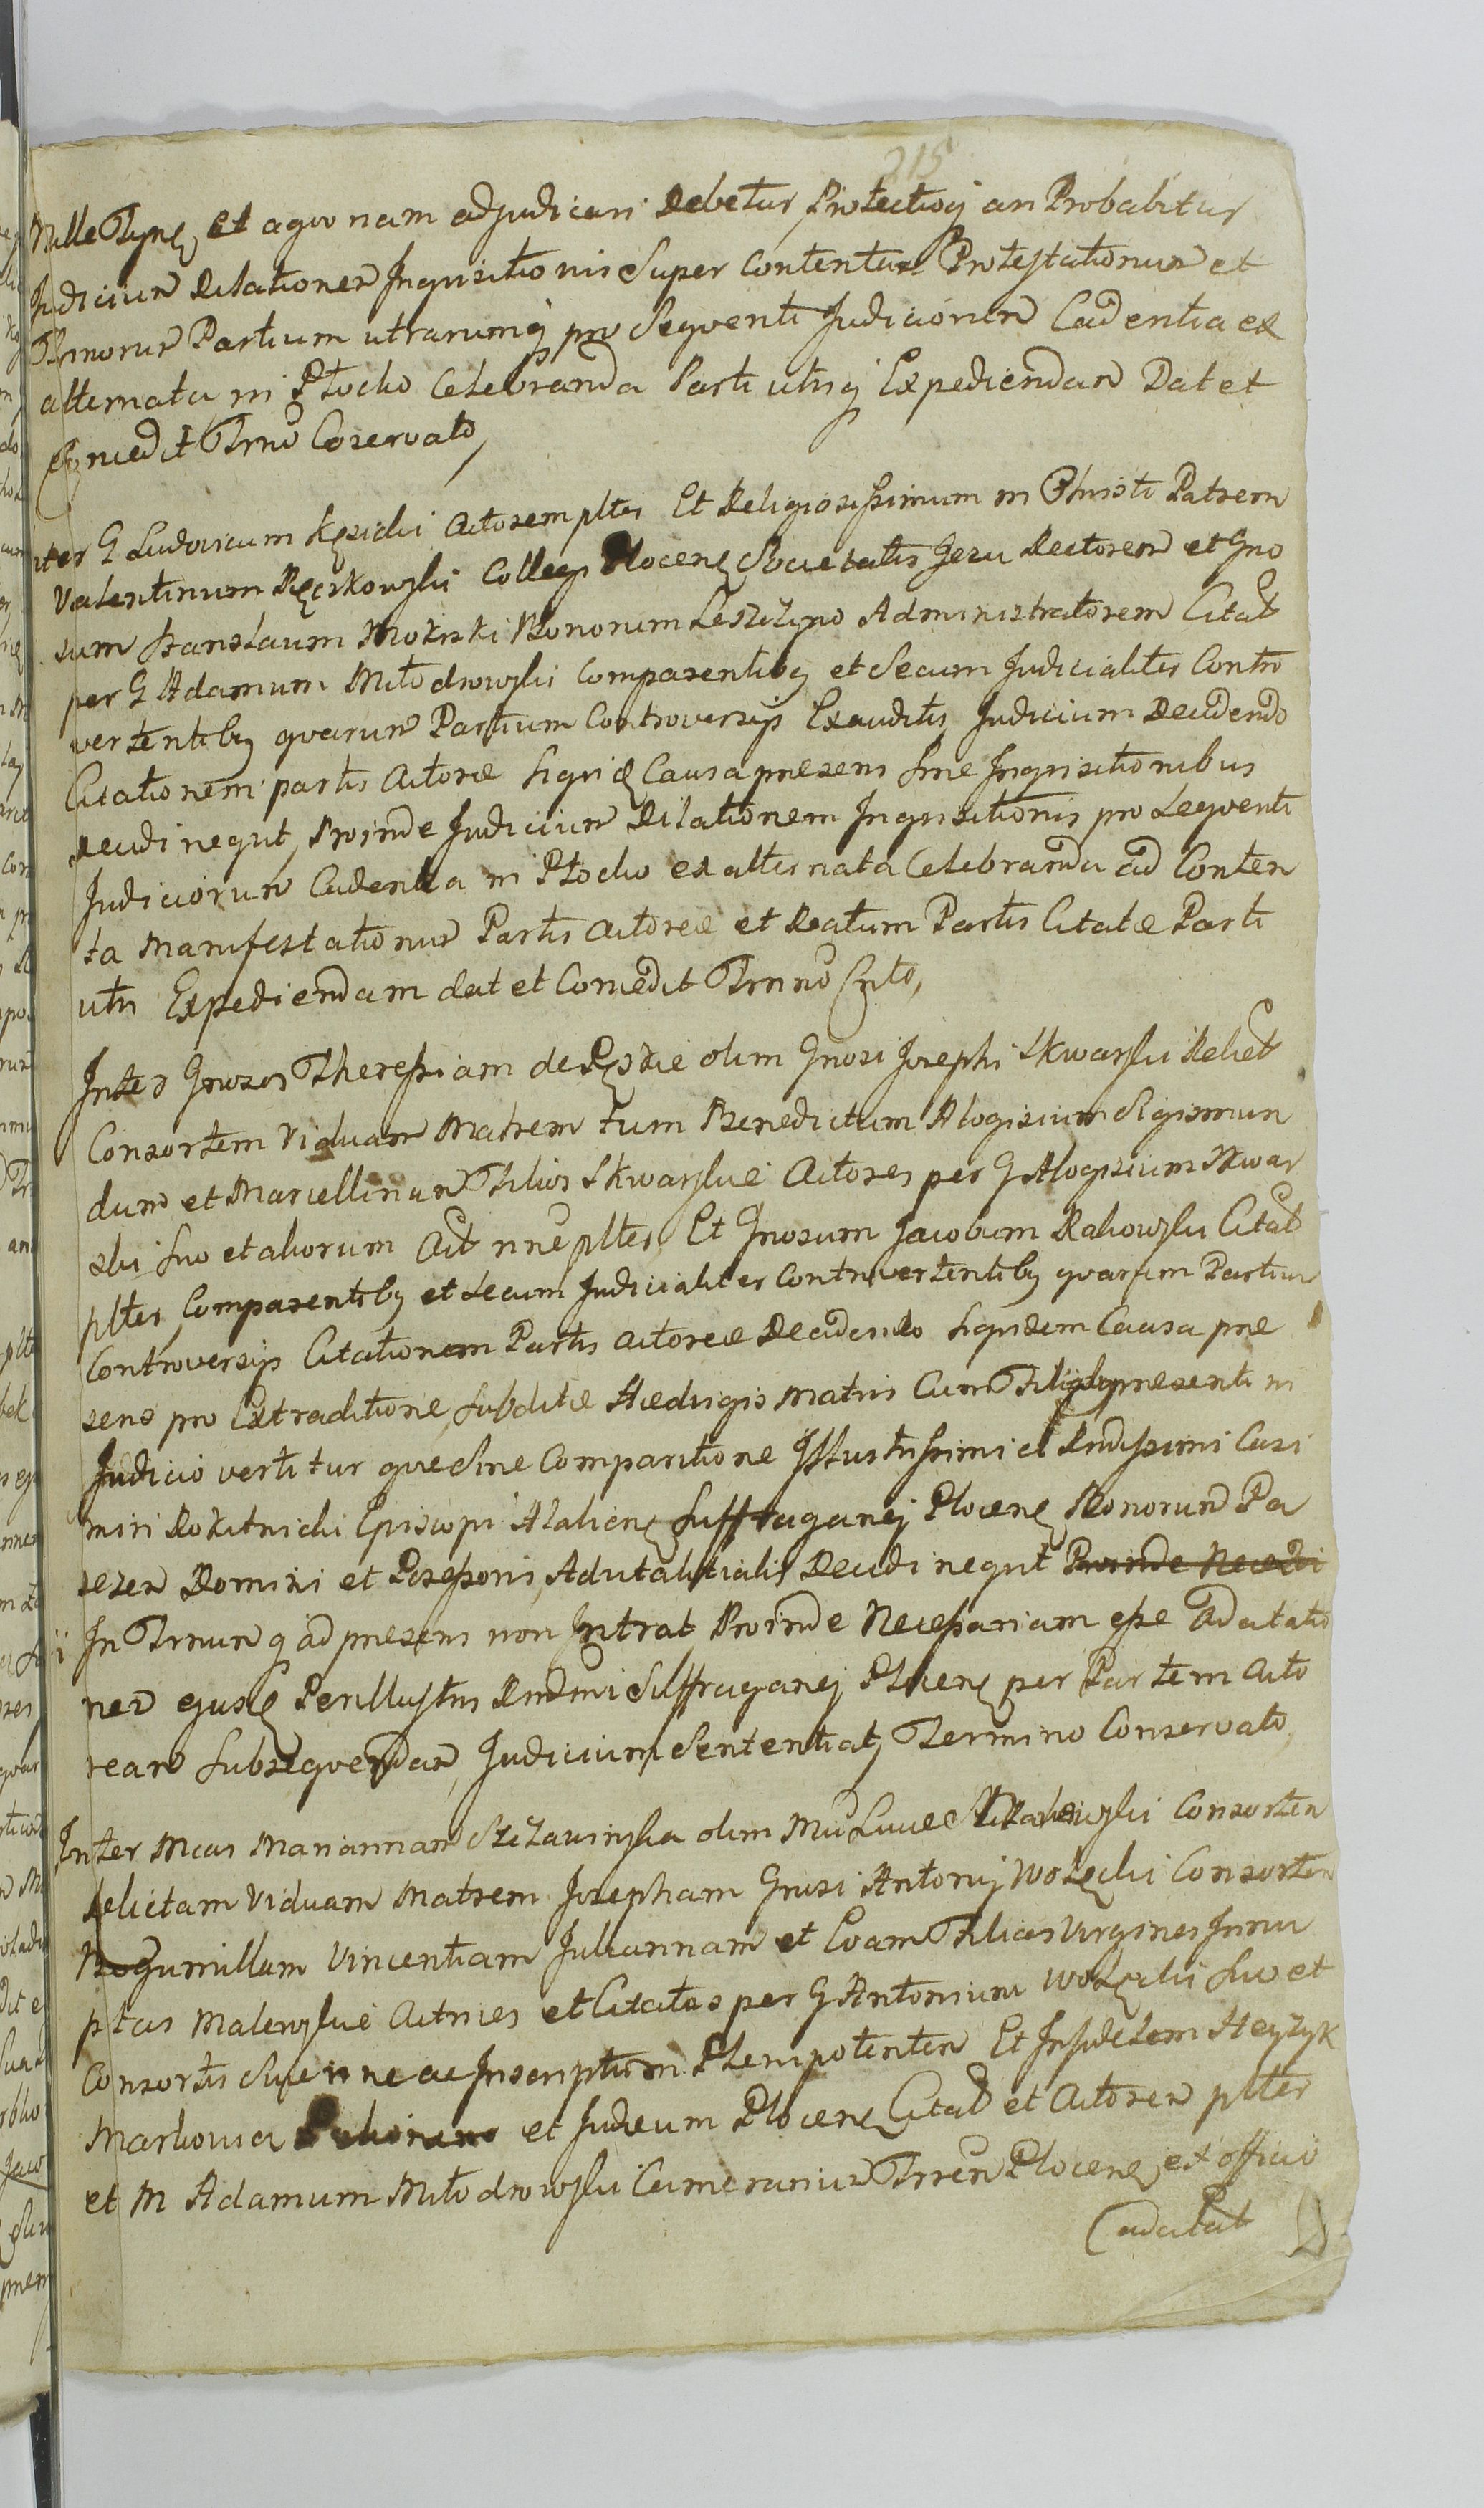 215
Mille Tynf, et a qvo nam adjudicari debetur, Protectioq an Probabitur
Judicium Dilationem Inqvisitionis Super Contentum Protestationum et
Trmorum Partium utrarumq pro Seqventi Judiciorum Cadentia ex
alternata in Płocko Celebranda Parti utriq Expediendam Dat et
Concedit Trmo Coservato,
Inter G Ludovicum Kęsicki Actorem plter Et Religiosissimum in Christo Patrem
Valentinum Ręczkowski Collegij Plocens Societatis Jesu Rectorem et Gno
sum Stanslaum Mokrski Bonorum Leszczyno Administratorem Citat
per G Adamum Młodzowski Comparentibq et Secum Judicialiter Contro
vertentibq qvarum Partium Controversijs Exauditis, Judicium Decidendo
Citationem partis Actoreæ Siqvid Causa præsens sine Inqvisitionibus
decidi neqvit, Proinde Judicium Dilationem Inqvisitionis pro Seqventi
Judiciorum Cadentia in Płocko ex alternata Celebranda ad Conten
ta Manifestationum Partis Actoreæ et Reatum Partis Citatæ Parti
utri Expediendam dat et Concedit Trmno Csvto,
Inter Gnosos Theressiam de olim Gnosi Josephi Skwarski Relict
Consortem Viduam Matrem tum Benedictum Alogisium Sigismun
dum et Marcellinum Filios Skwarskie Actores per G Alogisium Skwar
ski Suo et aliorum Act nne pltes Et Gnosum Jacobum Rakowski Citat
pltes Comparentibq et Secum Judicialiter Controvertentibq qvarum Partium
Controversijs Citationem Partis Actoreæ Decidendo Siqvidem Causa præ
sens pro Extraditione Subditæ Hedvigis Matris Cum Filijsbq præsenti in
Judicio vertitur qvæ Sine Comparitione Illustrissimi et Rndissimi Casi
miri Rokitnicki Episcopi Halicens Suffraganej Plocens Bonorum Pa
rezen Domini et Posessoris Advitalitialis Decidi neqvit Proinde Necessi
i In Trmum q ad præsens non Intrat Proinde Necessariam esse Adcitatio
nem ejusd Perillustris Rndmi Suffraganej Plocens per Partem Acto
ream Subseqvendam, Judicium Sententiat, Termino Conservato,
Inter Mcas Mariannam Szczawinska olim Mci Lucae Malewski Consortem
Relictam Viduam Matrem Josepham Gnosi Antonij Wołęcki Consortem
Bogumillam Vincentiam Juliannam et Evam Filias Virgines Innu
ptas Malewskie Actrices et Citatas per G Antonium Wołęcki Suo et
Consortis Suæ nne ac Inscriptum Plenipotentem Et Infidelem Heyzyk
Markowicz et Judeum Plocens Citat et Actorem pltes
et M Adamum Młodzowski Camerarium Trren Plocens, ex officio
adcitat